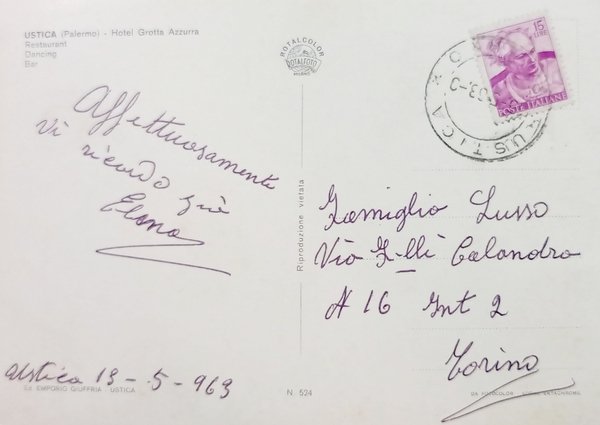 USTICA (Palermo) - Hotel Grotta Azzurra
Restaurant
Dancing
Bar
ROTALCOLOR
ROTALFOTO
MILANO
15
LIRE
POSTE ITALIANE
USTICA
Affettuosamente
vi ricordo
Elena
Riproduzione vietata
Famiglia Lusso
Via F-lli Calandra
N 16 Int 2
Torino
Ustica 13-5-963
Ed. EMPORIO GIUFFRIA - USTICA
N. 524